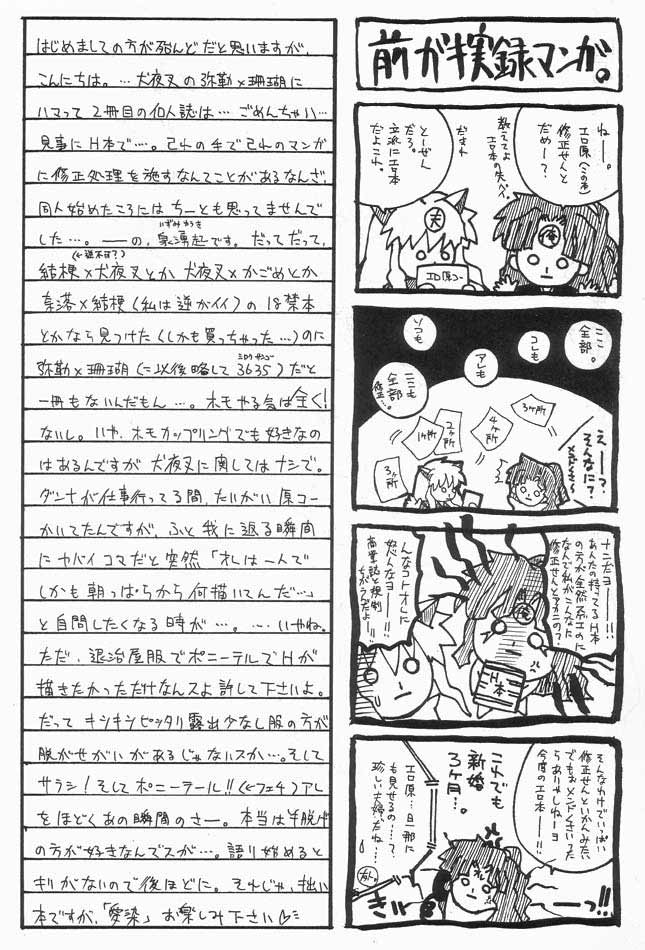 前がき実録マンガ。
ねー。
エロ原(↑この本)
修正せんと
だめー?
教えてよ
エロ本の先パイ。
だまれ
とーぜん
だろ。
立派にエロ本
だよこれ。
夫
俺
エロ原コー
ここ
全部。
コレも
アレも
ソコも
ここも
全部…
修正…。
3ヶ所
4ヶ所
2ヶ所
1ヶ所
3ヶ所
えーっ?
そんなに?
ナニだよ
あんたの持ってるH本
の方が全然スゴイのに
なんで私がこんなに
修正せんとアカンの?
んなコトオレに
怒んなヨー!!
商業誌と規制
ちがうんだよー!!
俺
H本
そんなわけでいっぱい
修正せんといかんみたい
でもおメンドくさいった
らありゃしねーヨ
今度のエロ本ーー!!
これでも
新婚
3ヶ月…。
エロ原…旦那に
も見せるの…?
珍しい夫婦だね…
友人。
オレ
きぃーっ!!
はじめましての方が殆んどだと思いますが、
こんにちは。…犬夜叉の弥勒×珊瑚に
ハマって2冊目の同人誌は…ごめんちゃい…
見事にH本で…。己れの手で己れのマンガ
に修正処理を施すなんてことがあるなんざ、
同人始めたころにはちーとも思ってませんで
した…。——の、泉湧起です。だってだって、
いずみゆうき
(←逆不可?)
結梗×犬夜叉とか 犬夜叉×かごめとか
奈落×結梗(私は逆がイイ)の18禁本
とかなら見つけた(しかも買っちゃった…)のに
ミロクサンゴ
弥勒×珊瑚(に以後略して3635)だと
一冊もないんだもん…。ホモやる気は全く!
ないし。いや、ホモカップリングでも好きなの
はあるんですが犬夜叉に関してはナシで。
ダンナが仕事行ってる間、たいがい原コー
かいてたんですが、ふと我に返る瞬間
にヤバイコマだと突然「オレは一人で
しかも朝っぱらから何描いてんだ…」
と自問したくなる時が…。…いやね。
ただ、退治屋服でポニーテルでHが
描きたかっただけなんスよ許して下さいよ。
だって キンキンピッタリ露出少なし服の方が
脱がせがいがあるじゃないスか…。そして
サラシ!そしてポニーテール!!(←フェチ)アレ
をほどくあの瞬間のさー。本当は半脱げ
の方が好きなんでスが…。語り始めると
キリがないので後ほどに。それじゃ、拙い
本ですが、「愛染」お楽しみ下さい